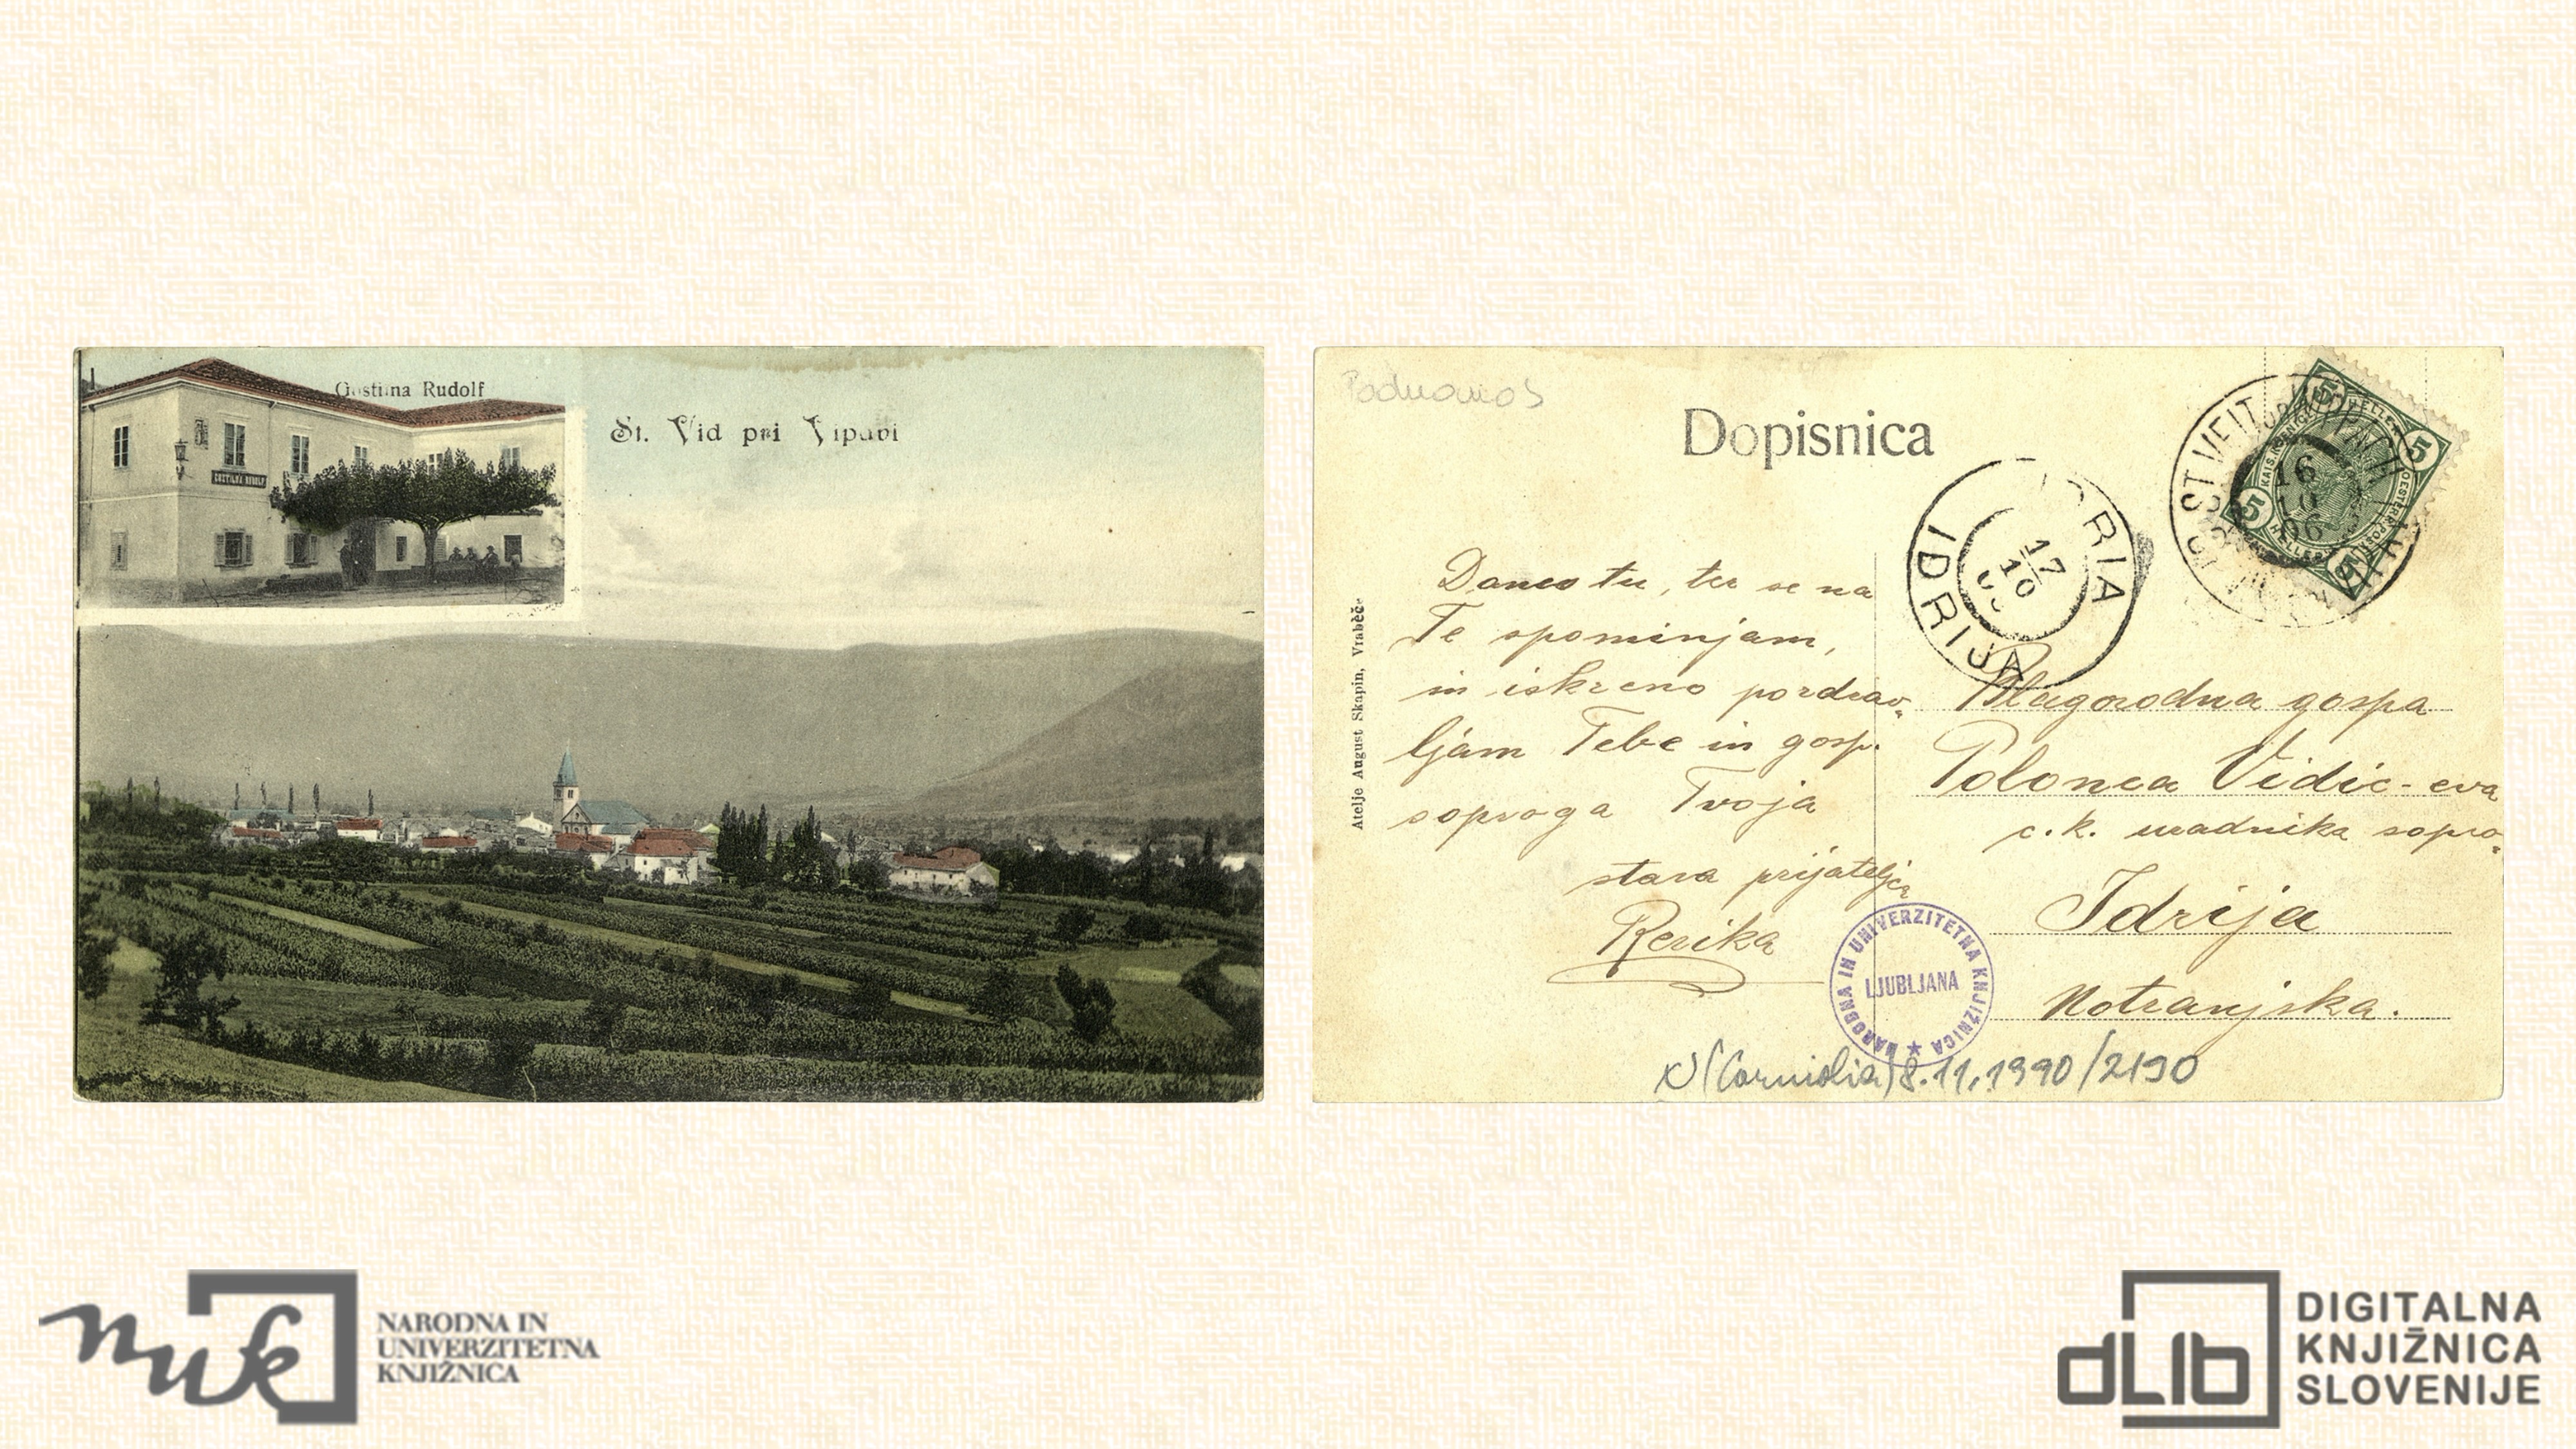 Gostilna Rudolf
GOSTILNA RUDOLF
St. Vid pri Vipavi
Podnanos
Dopisnica
Atelje August Skapin, Vrabče
ST VEIT
16
10
06
5
5
5
HELLER
HELLER
IDRIA
17
10
IDRIJA
Danes tu, ter se na
Te spominjam,
in iskreno pozdrav-
ljam Tebe in gosp.
soproga Tvoja
stara prijateljca
Rezika
Blagorodna gospa
Polonca Vidic-eva
c. k. uradnika sopro-
Idrija
Notranjska.
NARODNA IN UNIVERZITETNA KNJIŽNICA
LJUBLJANA
(Carniolia) 8.11.1990/2190
nuk
NARODNA IN
UNIVERZITETNA
KNJIŽNICA
dLib
DIGITALNA
KNJIŽNICA
SLOVENIJE